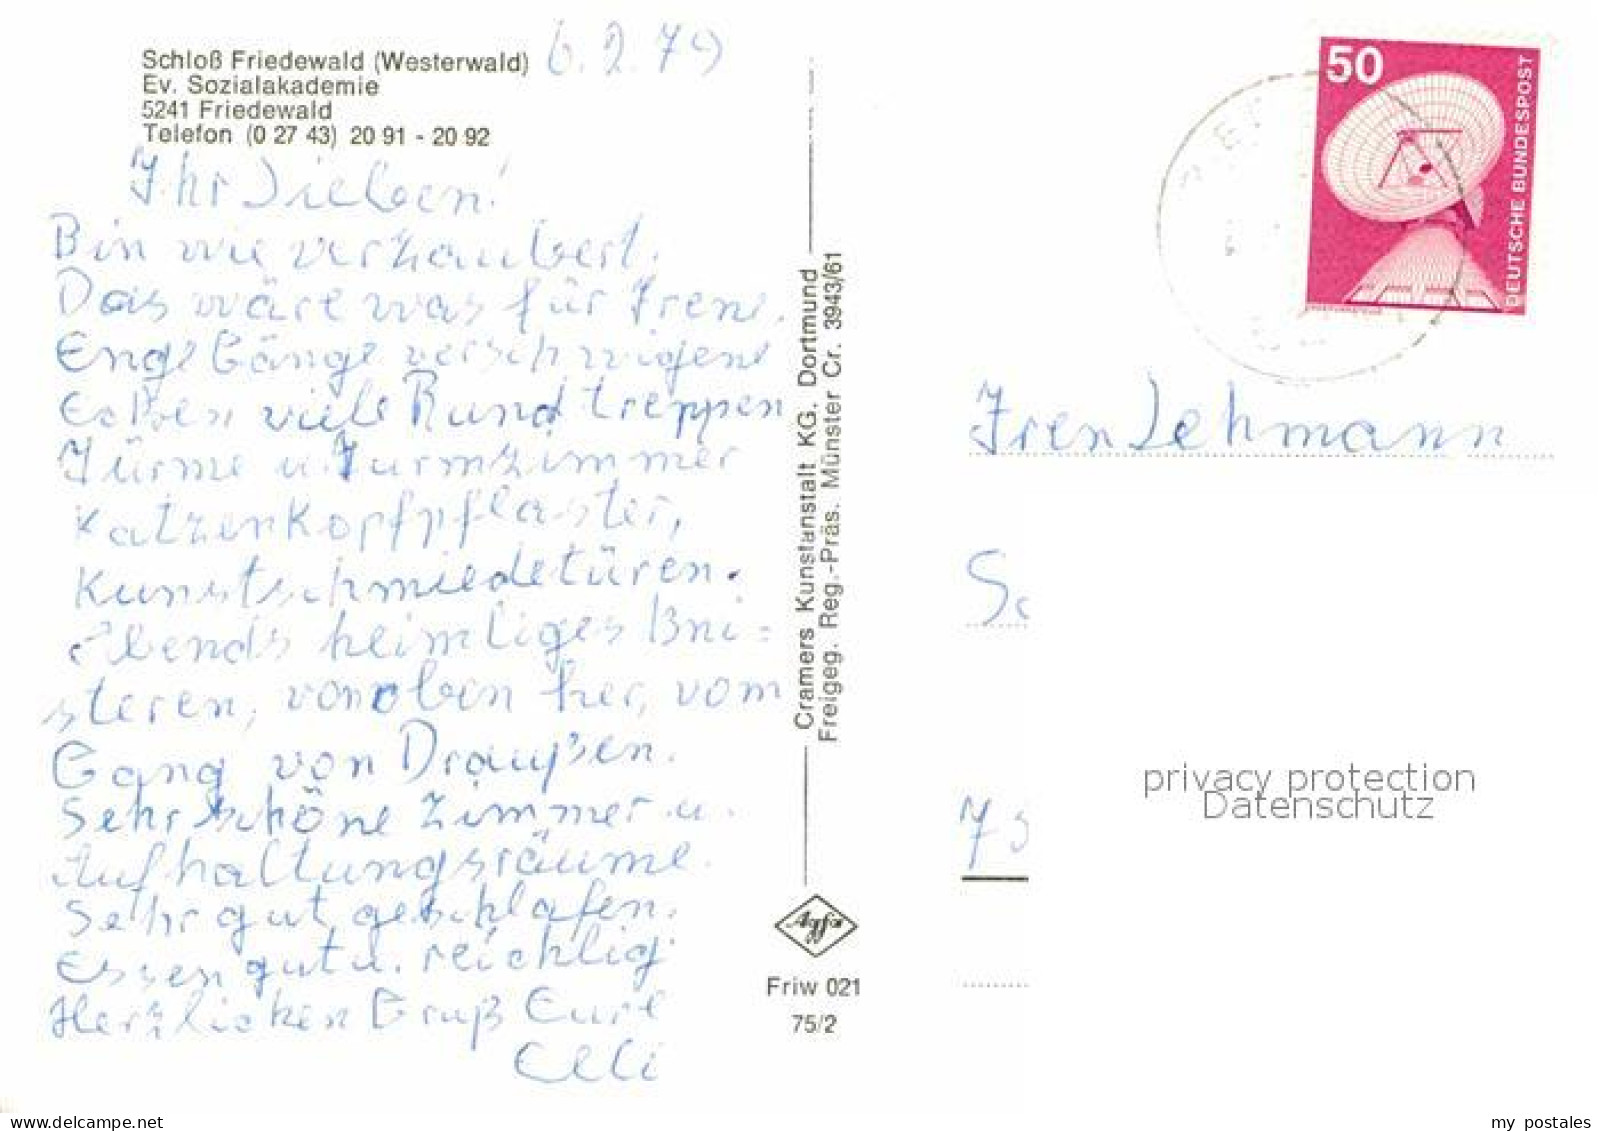 Schloß Friedewald (Westerwald)
Ev. Sozialakademie
5241 Friedewald
Telefon (0 27 43) 20 91 - 20 92
6. 2. 79
Ihr Lieben!
Bin wie verzaubert.
Das wäre was für Irene.
Enge Gänge verschwigene
Ecken viele Rundtreppen
Türme u. Turmzimmer
Katzenkopfpflaster,
Kunstschmiedetüren.
Abends heimliges Kni=
steren, von oben her, vom
Gang von Draußen.
Sehr schöne Zimmer u.
Aufhaltungsräume.
Sehr gut geschlafen.
Essen gut u. reichlig
Herzlichen Gruß Eure
Elli
Cramers Kunstanstalt KG. Dortmund
Freigeg. Reg.-Präs. Münster Cr. 3943/61
Agfa
Friw 021
75/2
50
DEUTSCHE BUNDESPOST
Iren Lehmann
privacy protection
Datenschutz
www.delcampe.net
my_postales